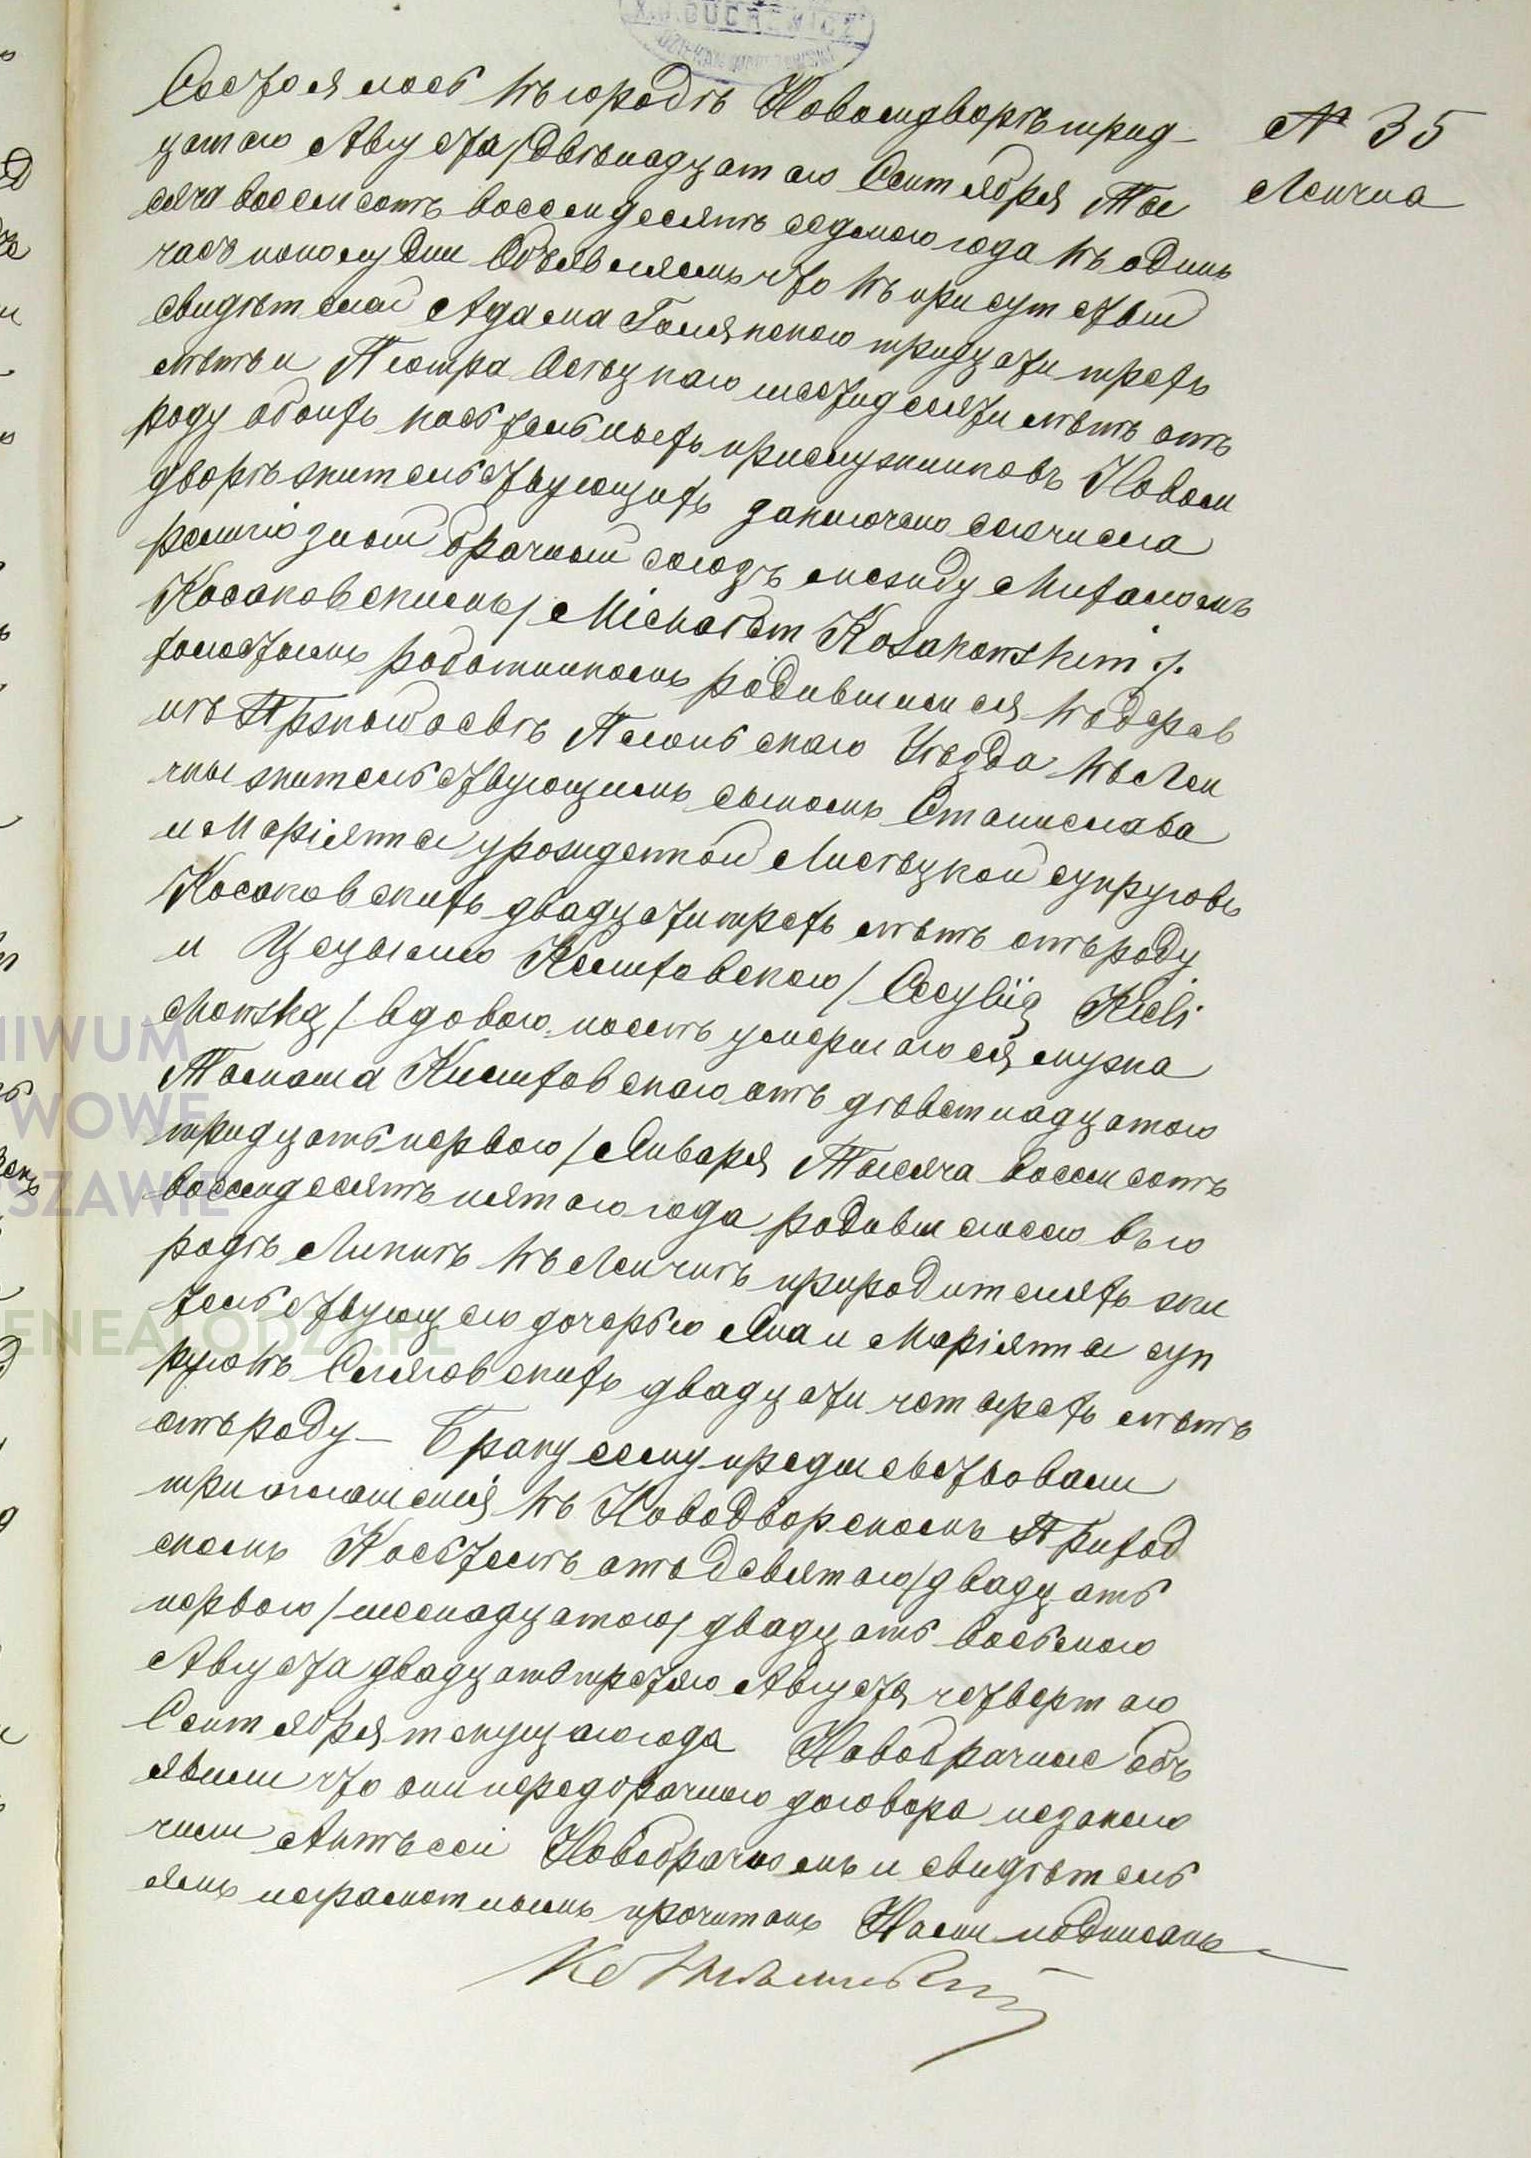 № 35
Лончна
Состоялось въ городѣ Новомдворѣ трид-
цатаго Августа / двѣнадцатаго Сентября Ты
сяча восемсотъ восемдесятъ седмого года въ одинъ
часъ пополудни Объявляемъ что въ присутствіи
свидѣтелей Адама тридцати трехъ
лѣтъ и Піотра шестидесяти лѣтъ отъ
роду обоихъ костельныхъ прислужниковъ Новом
дворѣ жительствующихъ заключено сего числа
религіозный брачный союзъ между Михаломъ
Косаковскимъ / Michałem Kosakowskim /.
холостымъ работникомъ родившимся въ дерев
нѣ Плоньскаго Уѣзда въ Лон
чны жительствующимъ сыномъ Станислава
и Маріянны урожденной супруговъ
Косаковскихъ двадцати трехъ лѣтъ отъ роду
и Цецылію / Cecylią Kieli
chowską / вдовою послѣ умершагося мужа
Томаша отъ девятнадцатого
тридцать первого / Января Тысяча восемсотъ
восемдесятъ пятого года родившеюся въ го
родѣ Липнѣ въ Лончнѣ при родителяхъ жи
тельствующею дочерью Яна и Маріянны суп
руговъ двадцати четырехъ лѣтъ
отъ роду — Браку сему предшествовали
три оглашенія въ Новодворскомъ Приход
скомъ Костелѣ отъ девятого / двадцать
первого / шеснадцатого / двадцать восьмого
Августа двадцать третяго Августа четвертого
Сентября текущаго года Новобрачные объ
явили что они передбрачного договора не заклю
чили Актъ сей Новобрачнымъ и свидѣтель
ямъ неграмотнымъ прочитанъ Нами подписанъ